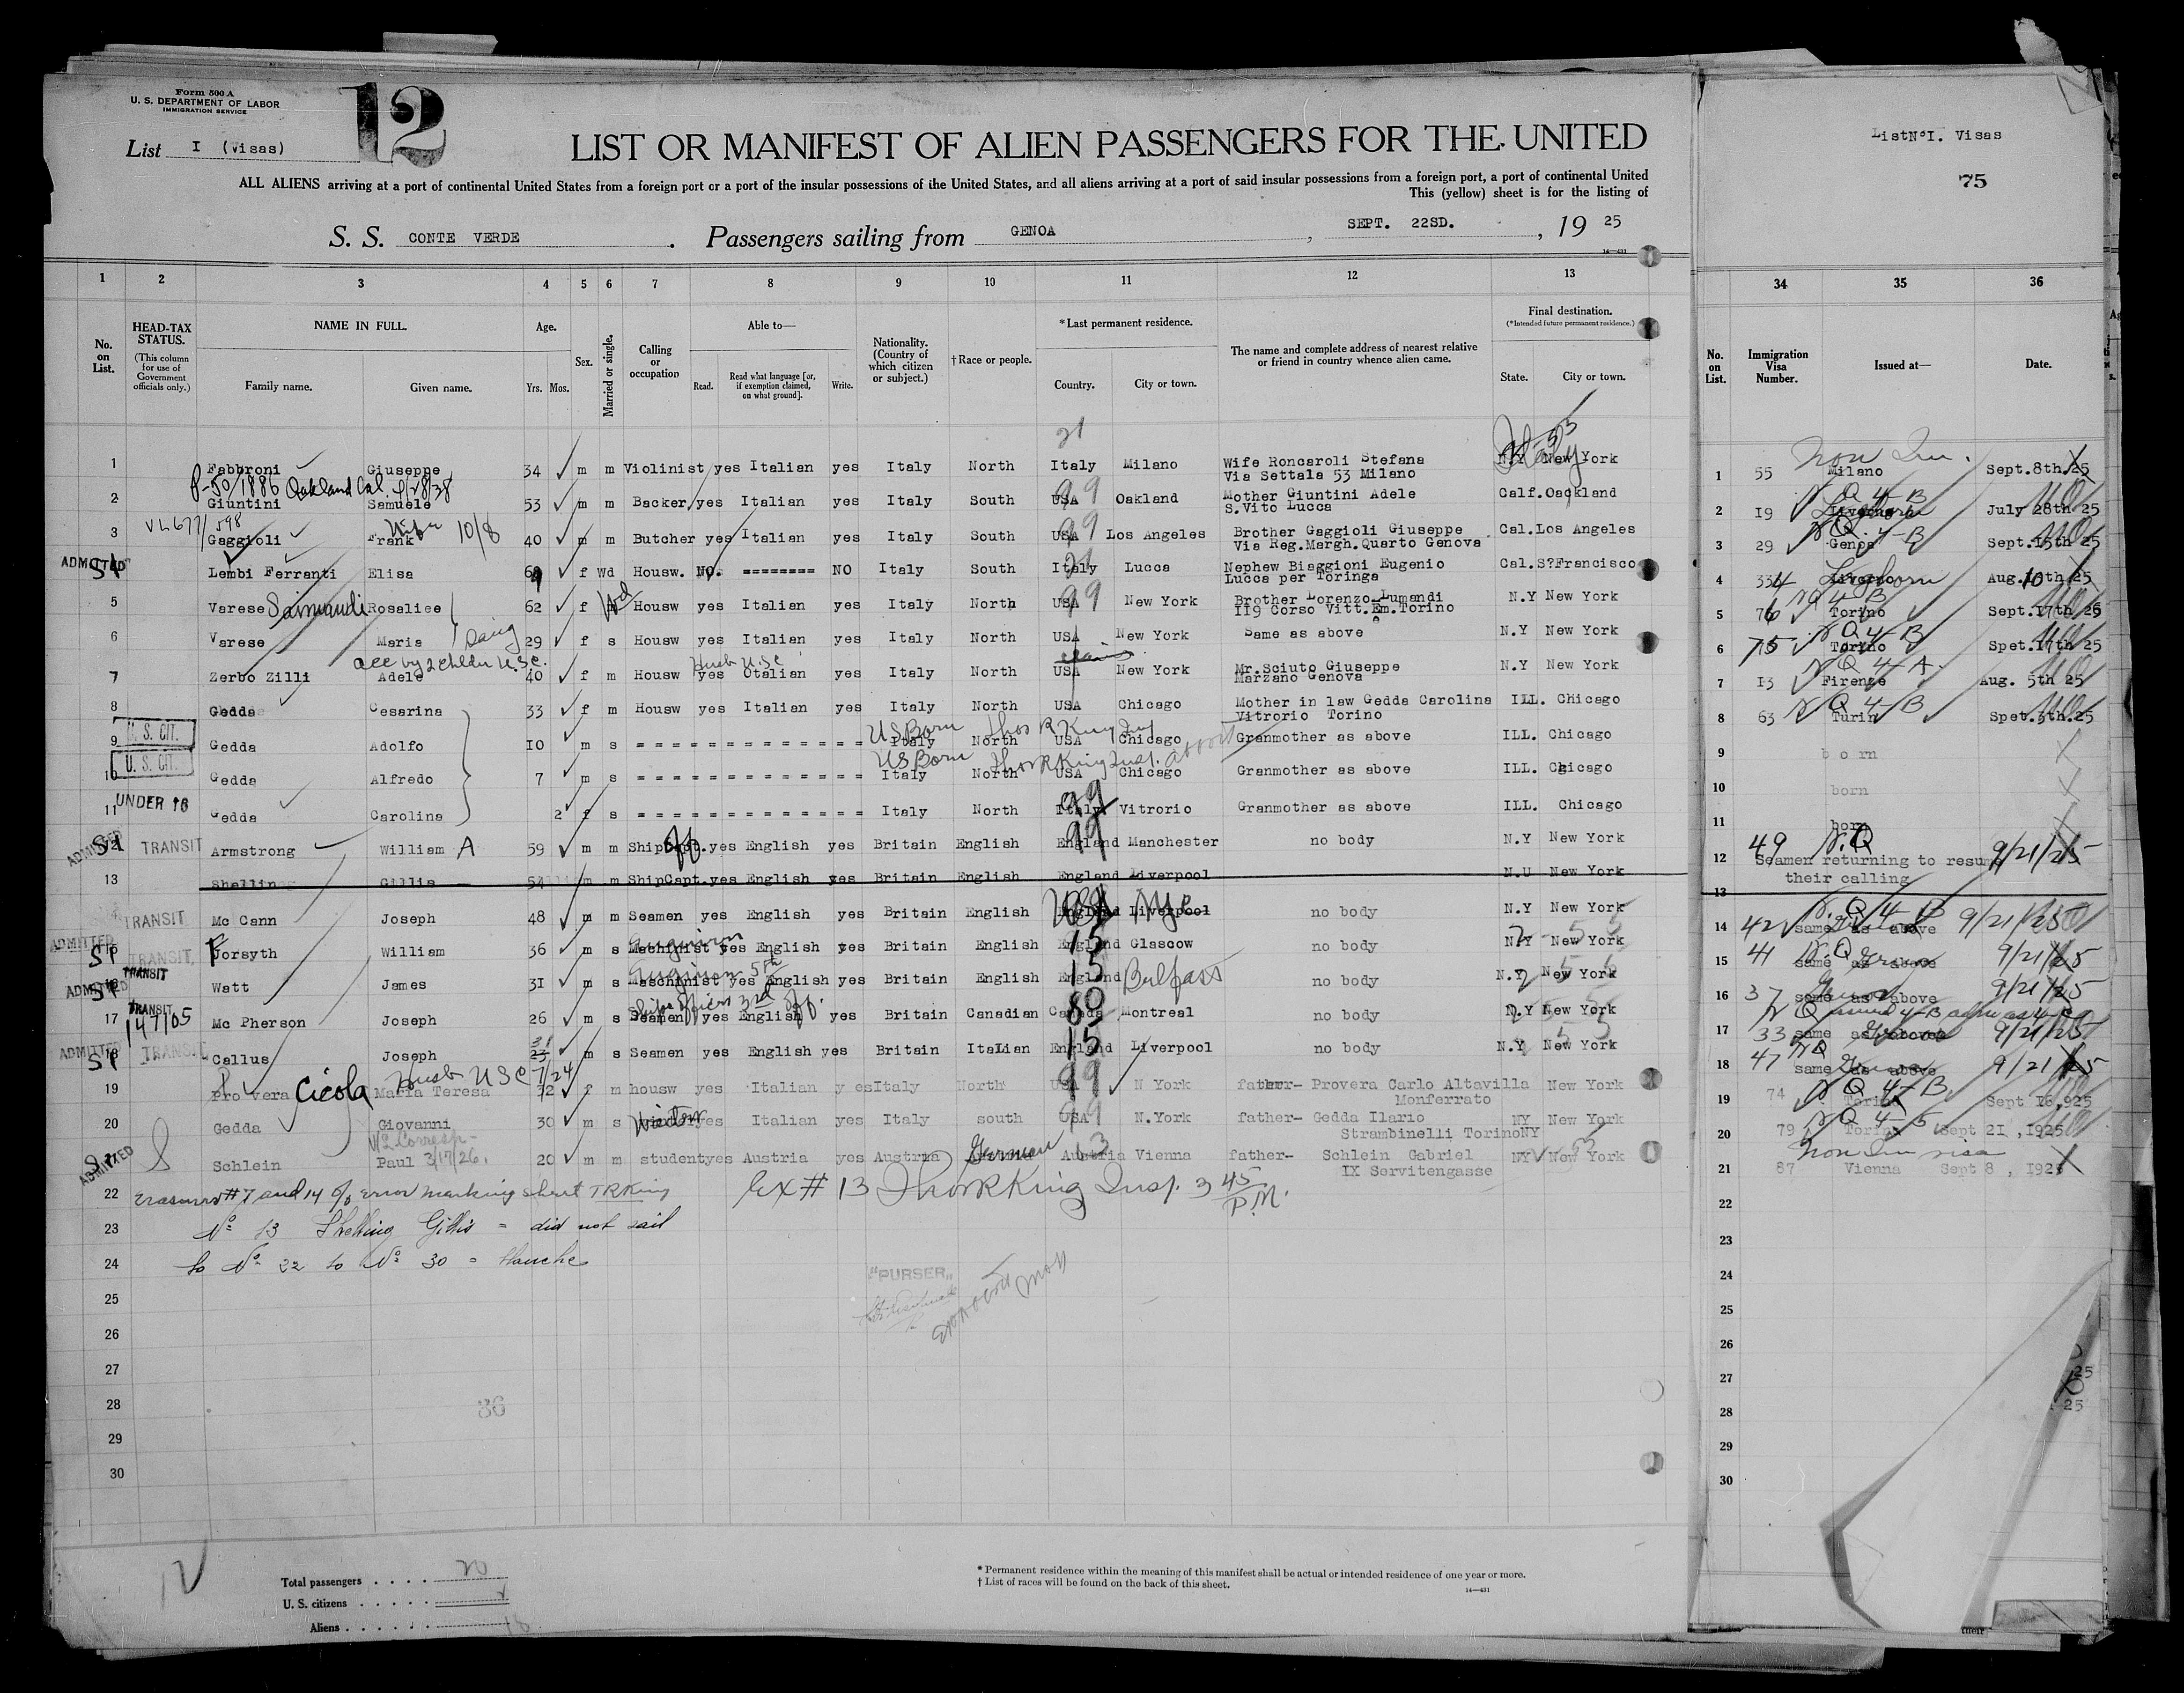 Form 500 A
U. S. DEPARTMENT OF LABOR
IMMIGRATION SERVICE
12
List I (Visas)
LIST OR MANIFEST OF ALIEN PASSENGERS FOR THE UNITED
ALL ALIENS arriving at a port of continental United States from a foreign port or a port of the insular possessions of the United States, and all aliens arriving at a port of said insular possessions from a foreign port, a port of continental United
This (yellow) sheet is for the listing of
S. S. CONTE VERDE . Passengers sailing from GENOA , SEPT. 22SD. , 19 25
14—431
ListNoI. Visas
75
1 2 3 4 5 6 7 8 9 10 11 12 13
34 35 36
No. on List.
HEAD-TAX STATUS.
(This column for use of Government officials only.)
NAME IN FULL.
Family name. Given name.
Age.
Yrs. Mos.
Sex.
Married or single.
Calling or occupation
Able to—
Read. Read what language [or, if exemption claimed, on what ground]. Write.
Nationality. (Country of which citizen or subject.)
†Race or people.
*Last permanent residence.
Country. City or town.
The name and complete address of nearest relative or friend in country whence alien came.
Final destination.
(*Intended future permanent residence.)
State. City or town.
No. on List.
Immigration Visa Number.
Issued at—
Date.
21
Italy
Non Im.
1 Fabbroni Giuseppe 34 m m Violinist yes Italian yes Italy North Italy Milano Wife Roncaroli Stefana N.Y New York
Via Settala 53 Milano
1 55 Milano Sept.8th.25
Oakland Cal.
2 Giuntini Samuele 53 m m Backer yes Italian yes Italy South USA 99 Oakland Mother Giuntini Adele Calf.Oackland
S.Vito Lucca
2 I9 Q 4-B July 28th 25
10/8
3 Gaggioli Frank 40 m m Butcher yes Italian yes Italy South USA 99 Los Angeles Brother Gaggioli Giuseppe Cal.Los Angeles
Via Reg.Margh.Quarto Genova
3 29 Genoa Q 4-B Sept.15th 25
ADMITTED
SI Lembi Ferranti Elisa f Wd Housw. NO. ======== NO Italy South Italy 21 Lucca Nephew Biaggioni Eugenio Cal.S?Francisco
Lucca per Toringa
4 334 Leghorn Aug.10th 25
5 Varese Rosaliee 62 f Wd Housw yes Italian yes Italy North USA 99 New York Brother Lorenzo Lumandi N.Y New York
II9 Corso Vitt.Em.Torino
5 76 Torino Q 4-B Sept.17th 25
6 Varese Maria 29 f s Housw yes Italian yes Italy North USA New York Same as above N.Y New York
6 75 Torino Q 4-B Spet.17th 25
acc by 2 childn U.S.C. Husb U.S.C
7 Zerbo Zilli Adele 40 f m Housw yes Otalian yes Italy North USA New York Mr.Sciuto Giuseppe N.Y New York
Marzano Genova
7 I3 Firenze Q 4-A. Aug. 5th 25
8 Gedda Cesarina 33 f m Housw yes Italian yes Italy North USA Chicago Mother in law Gedda Carolina ILL. Chicago
Vitrorio Torino
8 63 Turin Q 4-B Spet.3th.25
U. S. CIT.
US Born Thos R King Insp
9 Gedda Adolfo IO m s Italy North USA Chicago Granmother as above ILL. Chicago
9 born
U. S. CIT.
US Born Thos R King Insp.
10 Gedda Alfredo 7 m s Italy North USA Chicago Granmother as above ILL. Chicago
10 born
UNDER 16
11 Gedda Carolina 2 f s Italy North Italy 99 Vitrorio Granmother as above ILL. Chicago
11 born
ADMITTED SI
12 TRANSIT Armstrong William A 59 m m ShipCapt.yes English yes Britain English England 99 Manchester no body N.Y New York
12 49 N.Q 9/21/25
Seamen returning to resum
their calling
13 Shelling Gillis 54 m m ShipCapt.yes English yes Britain English England Liverpool N.U New York
13
TRANSIT Mc Cann Joseph 48 m m Seamen yes English yes Britain English England Liverpool no body N.Y New York
14 42 same as above Q 4 B 9/21/25
ADMITTED SI TRANSIT Forsyth William 36 m s Mechinist yes English yes Britain English England 15 Glascow no body N.Y New York
15 41 same as above 9/21/25
ADMITTED SI TRANSIT Watt James 3I m s Maschinist yes English yes Britain English England 15 Belfast no body N.Y New York
16 37 same as above 9/21/25
17 TRANSIT 147/05 Mc Pherson Joseph 26 m s Seamen yes English yes Britain Canadian Canada 80 Montreal no body N.Y New York
17 33 same as above 9/21/25
ADMITTED SI TRANSIT Callus Joseph m s Seamen yes English yes Britain Italian England 15 Liverpool no body N.Y New York
18 47 same as above 9/21/25
Husb USC
19 Provera Cicola Maria Teresa f m housw yes Italian yes Italy North USA 99 N York father- Provera Carlo Altavilla New York
Monferrato
19 74 Torino Q 4-B Sept 16,925
20 Gedda Giovanni 30 m s yes Italian yes Italy south USA 99 N.York father- Gedda Ilario NY New York
Strambinelli Torino NY
20 79 Torino Sept 2I ,1925
Non Im visa
3/17/26.
ADMITTED SI Schlein Paul 20 m m student yes Austria yes Austria German Austria 63 Vienna father- Schlein Gabriel NY New York
IX Servitengasse
21 87 Vienna Sept 8 , I925
22 Erasures #7 and 14 o/o error marking sheet TRKing Ex # 13 Thos R King Insp. 3 45 P.M.
23 No 13 Shelling Gillis = did not sail
24 to No 22 to No 30 = blanche
"PURSER"
25
26
27
28
36
29
30
22
23
24
25
26
27
28
29
30
12
Total passengers . . . . 20
U. S. citizens . . . . .
Aliens . . . . . . 18
* Permanent residence within the meaning of this manifest shall be actual or intended residence of one year or more.
† List of races will be found on the back of this sheet.
14—431